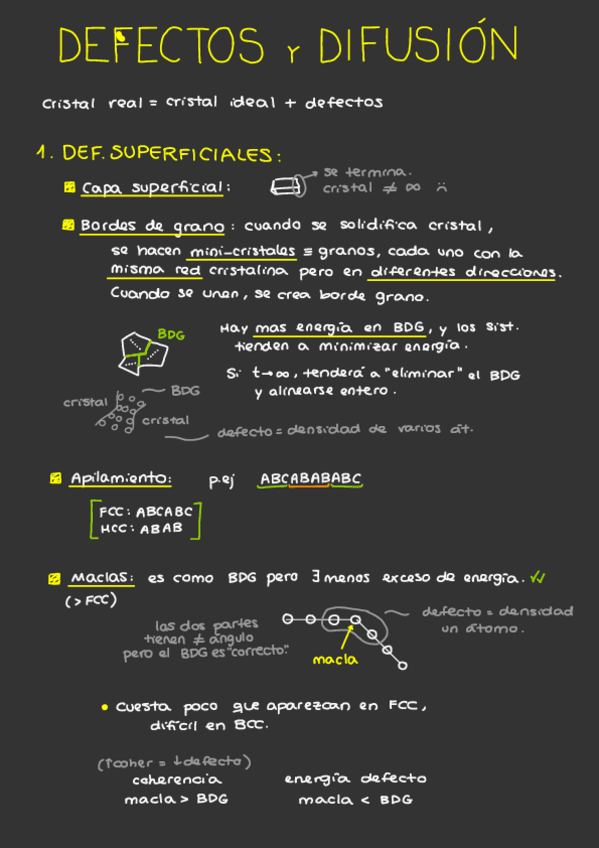 DEFECTOS Y DIFUSIÓN
Cristal real = cristal ideal + defectos
1. DEF. SUPERFICIALES:
Capa superficial:
se termina.
cristal ≠ ∞ :(
Bordes de grano: cuando se solidifica cristal,
se hacen mini-cristales ≡ granos, cada uno con la
misma red cristalina pero en diferentes direcciones.
Cuando se unen, se crea borde grano.
BDG
Hay mas energía en BDG, y los sist.
tienden a minimizar energía.
Si t→∞, tenderá a "eliminar" el BDG
y alinearse entero.
BDG
cristal
cristal
defecto = densidad de varios át.
Apilamiento: p.ej ABCABABABC
FCC: ABCABC
HCC: ABAB
Maclas: es como BDG pero ∃ menos exceso de energía. ✓✓
(> FCC)
defecto = densidad
un átomo.
las dos partes
tienen ≠ ángulo
pero el BDG es "correcto".
macla
• Cuesta poco que aparezcan en FCC,
difícil en BCC.
(↑coher = ↓defecto)
coherencia energía defecto
macla > BDG macla < BDG